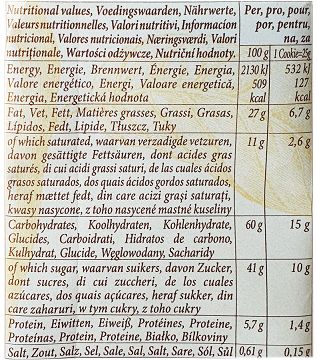 Nutritional values, Voedingswaarden, Nährwerte, Per, pro, pour,
Valeurs nutritionnelles, Valori nutritivi, Informacion por, pentru,
nutricional, Valores nutricionais, Næringsværdi, Valori na, za
nutriționale, Wartości odżywcze, Nutriční hodnoty. 100 g 1 Cookie=25g
Energy, Energie, Brennwert, Énergie, Energia, 2130 kJ 532 kJ
Valore energético, Energi, Valoare energetică, 509 127
Energia, Energetická hodnota kcal kcal
Fat, Vet, Fett, Matières grasses, Grassi, Grasas, 27 g 6,7 g
Lípidos, Fedt, Lipide, Tłuszcz, Tuky
of which saturated, waarvan verzadigde vetzuren, 11 g 2,6 g
davon gesättigte Fettsäuren, dont acides gras
saturés, di cui acidi grassi saturi, de las cuales ácidos
grasos saturados, dos quais ácidos gordos saturados,
heraf mættet fedt, din care acizi grași saturați,
kwasy nasycone, z toho nasycené mastné kuseliny
Carbohydrates, Koolhydraten, Kohlenhydrate, 60 g 15 g
Glucides, Carboidrati, Hidratos de carbono,
Kulhydrat, Glucide, Węglowodany, Sacharidy
of which sugar, waarvan suikers, davon Zucker, 41 g 10 g
dont sucres, di cui zuccheri, de los cuales
azúcares, dos quais açúcares, heraf sukker, din
care zaharuri, w tym cukry, z toho cukry
Protein, Eiwitten, Eiweiß, Protéines, Proteine, 5,7 g 1,4 g
Proteínas, Protein, Proteine, Białko, Bílkoviny
Salt, Zout, Salz, Sel, Sale, Sal, Salt, Sare, Sól, Sůl 0,61 g 0,15 g